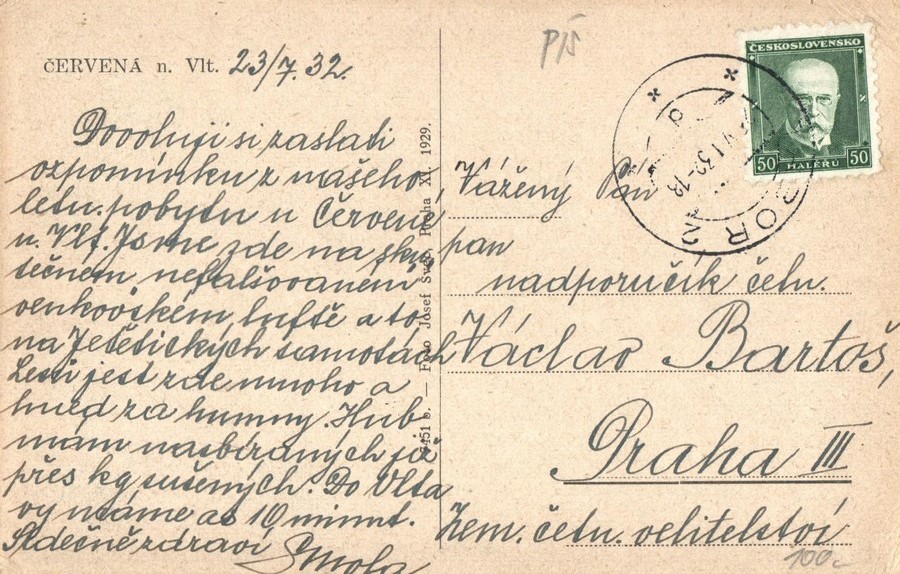 ČERVENÁ n. Vlt. 23/7. 32.
Dovoluji si zaslati
vzpomínku z našeho
letn. pobytu u Červené
n. Vlt. Jsme zde na sku
tečném, nefalšovaném
venkovském luftě a to
na Jetětických samotách
Lesů jest zde mnoho a
hned za humny. Hub
mám nasbíraných již
přes kg sušených. Do Vlta
vy máme as 10 minut.
Srdečně zdraví Smola
451 Foto Josef Praha XI. 1929.
PÍŠ
ČESKOSLOVENSKO
50 HALÉŘŮ 50
Vážený Pán
pan
nadporučík četn.
Václav Bartoš,
Praha III
Zem. četn. velitelství
100.-